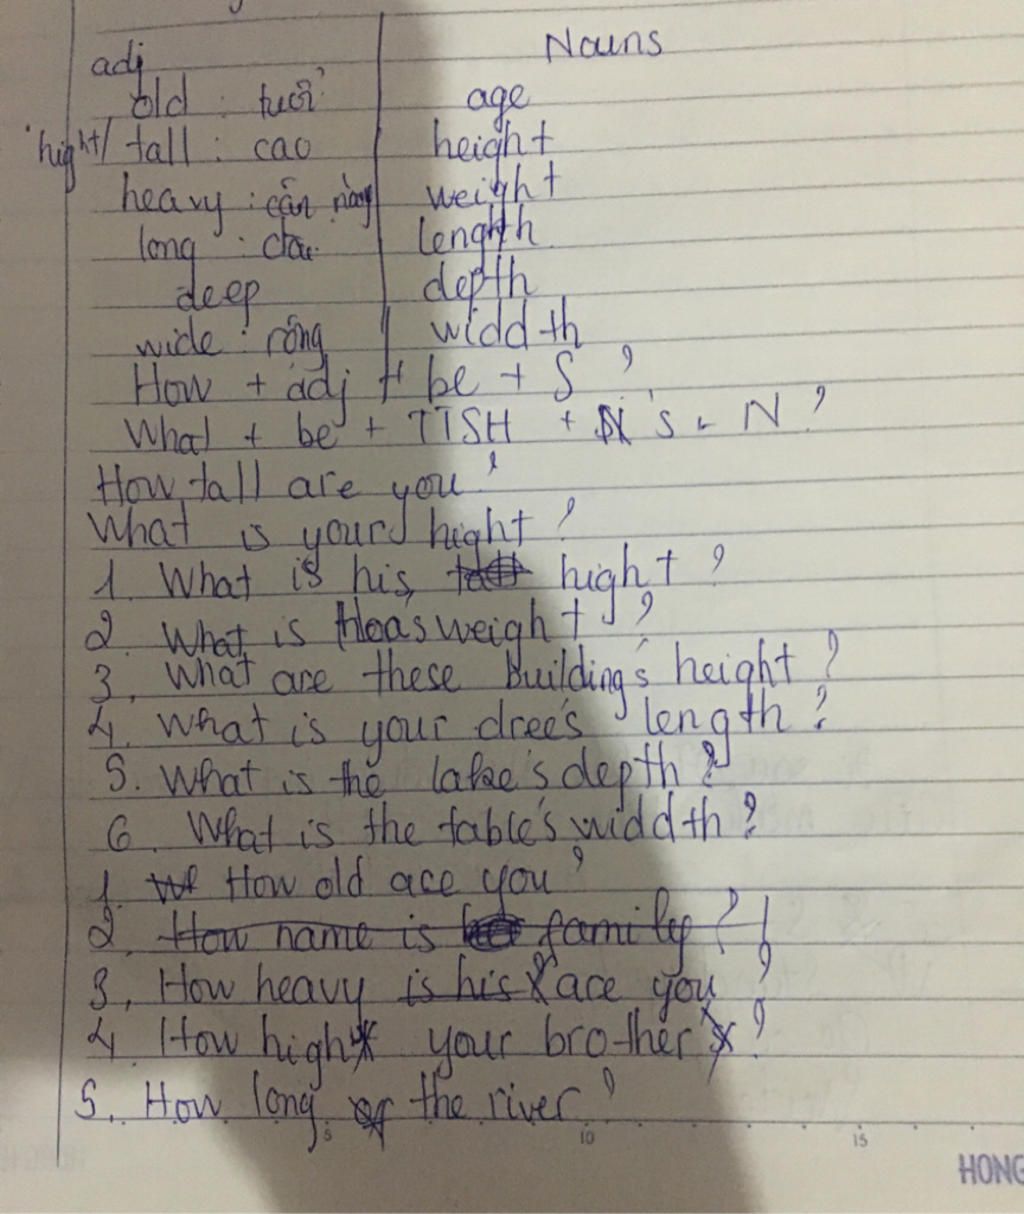 adj Nouns
old : tuổi age
hight/ tall : cao height
heavy : cân nặng weight
long : dài length
deep depth
wide : rộng widdth
How + adj + be + S ?
What + be + TTSH + N's + N ?
How tall are you ?
What is your hight ?
1. What is his hight ?
2. What is Hoa's weight ?
3. What are these building's height ?
4. What is your dree's length ?
5. What is the lake's depth ?
6. What is the table's widdth ?
1. How old are you ?
2. How name is family ?
3. How heavy is his are you ?
4. How high your brother ?
5. How long of the river ?
5 10 15
HONG